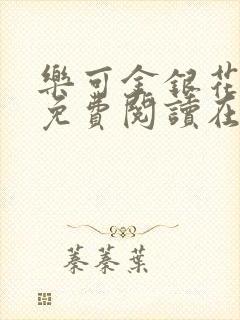 樂可金銀花
免費閱讀在
蓁蓁葉